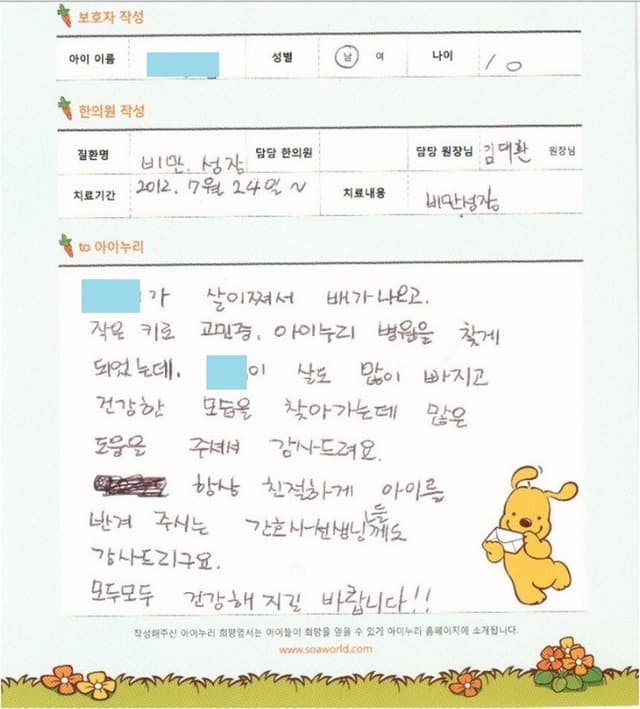 보호자 작성
아이 이름 성별 남 여 나이 10
한의원 작성
질환명 비만, 성장 담당 한의원 담당 원장님 김대환 원장님
치료기간 2012. 7월 24일 ~ 치료내용 비만,성장
to 아이누리
가 살이쪄서 배가나오고.
작은 키로 고민중, 아이누리 병원을 찾게
되었는데. 이 살도 많이 빠지고
건강한 모습을 찾아가는데 많은
도움을 주셔서 감사드려요.
항상 친절하게 아이를
반겨 주시는 간호사선생님들께도
감사드리구요.
모두모두 건강해 지길 바랍니다!!
작성해주신 아이누리 희망엽서는 아이들이 희망을 얻을 수 있게 아이누리 홈페이지에 소개됩니다.
www.soaworld.com